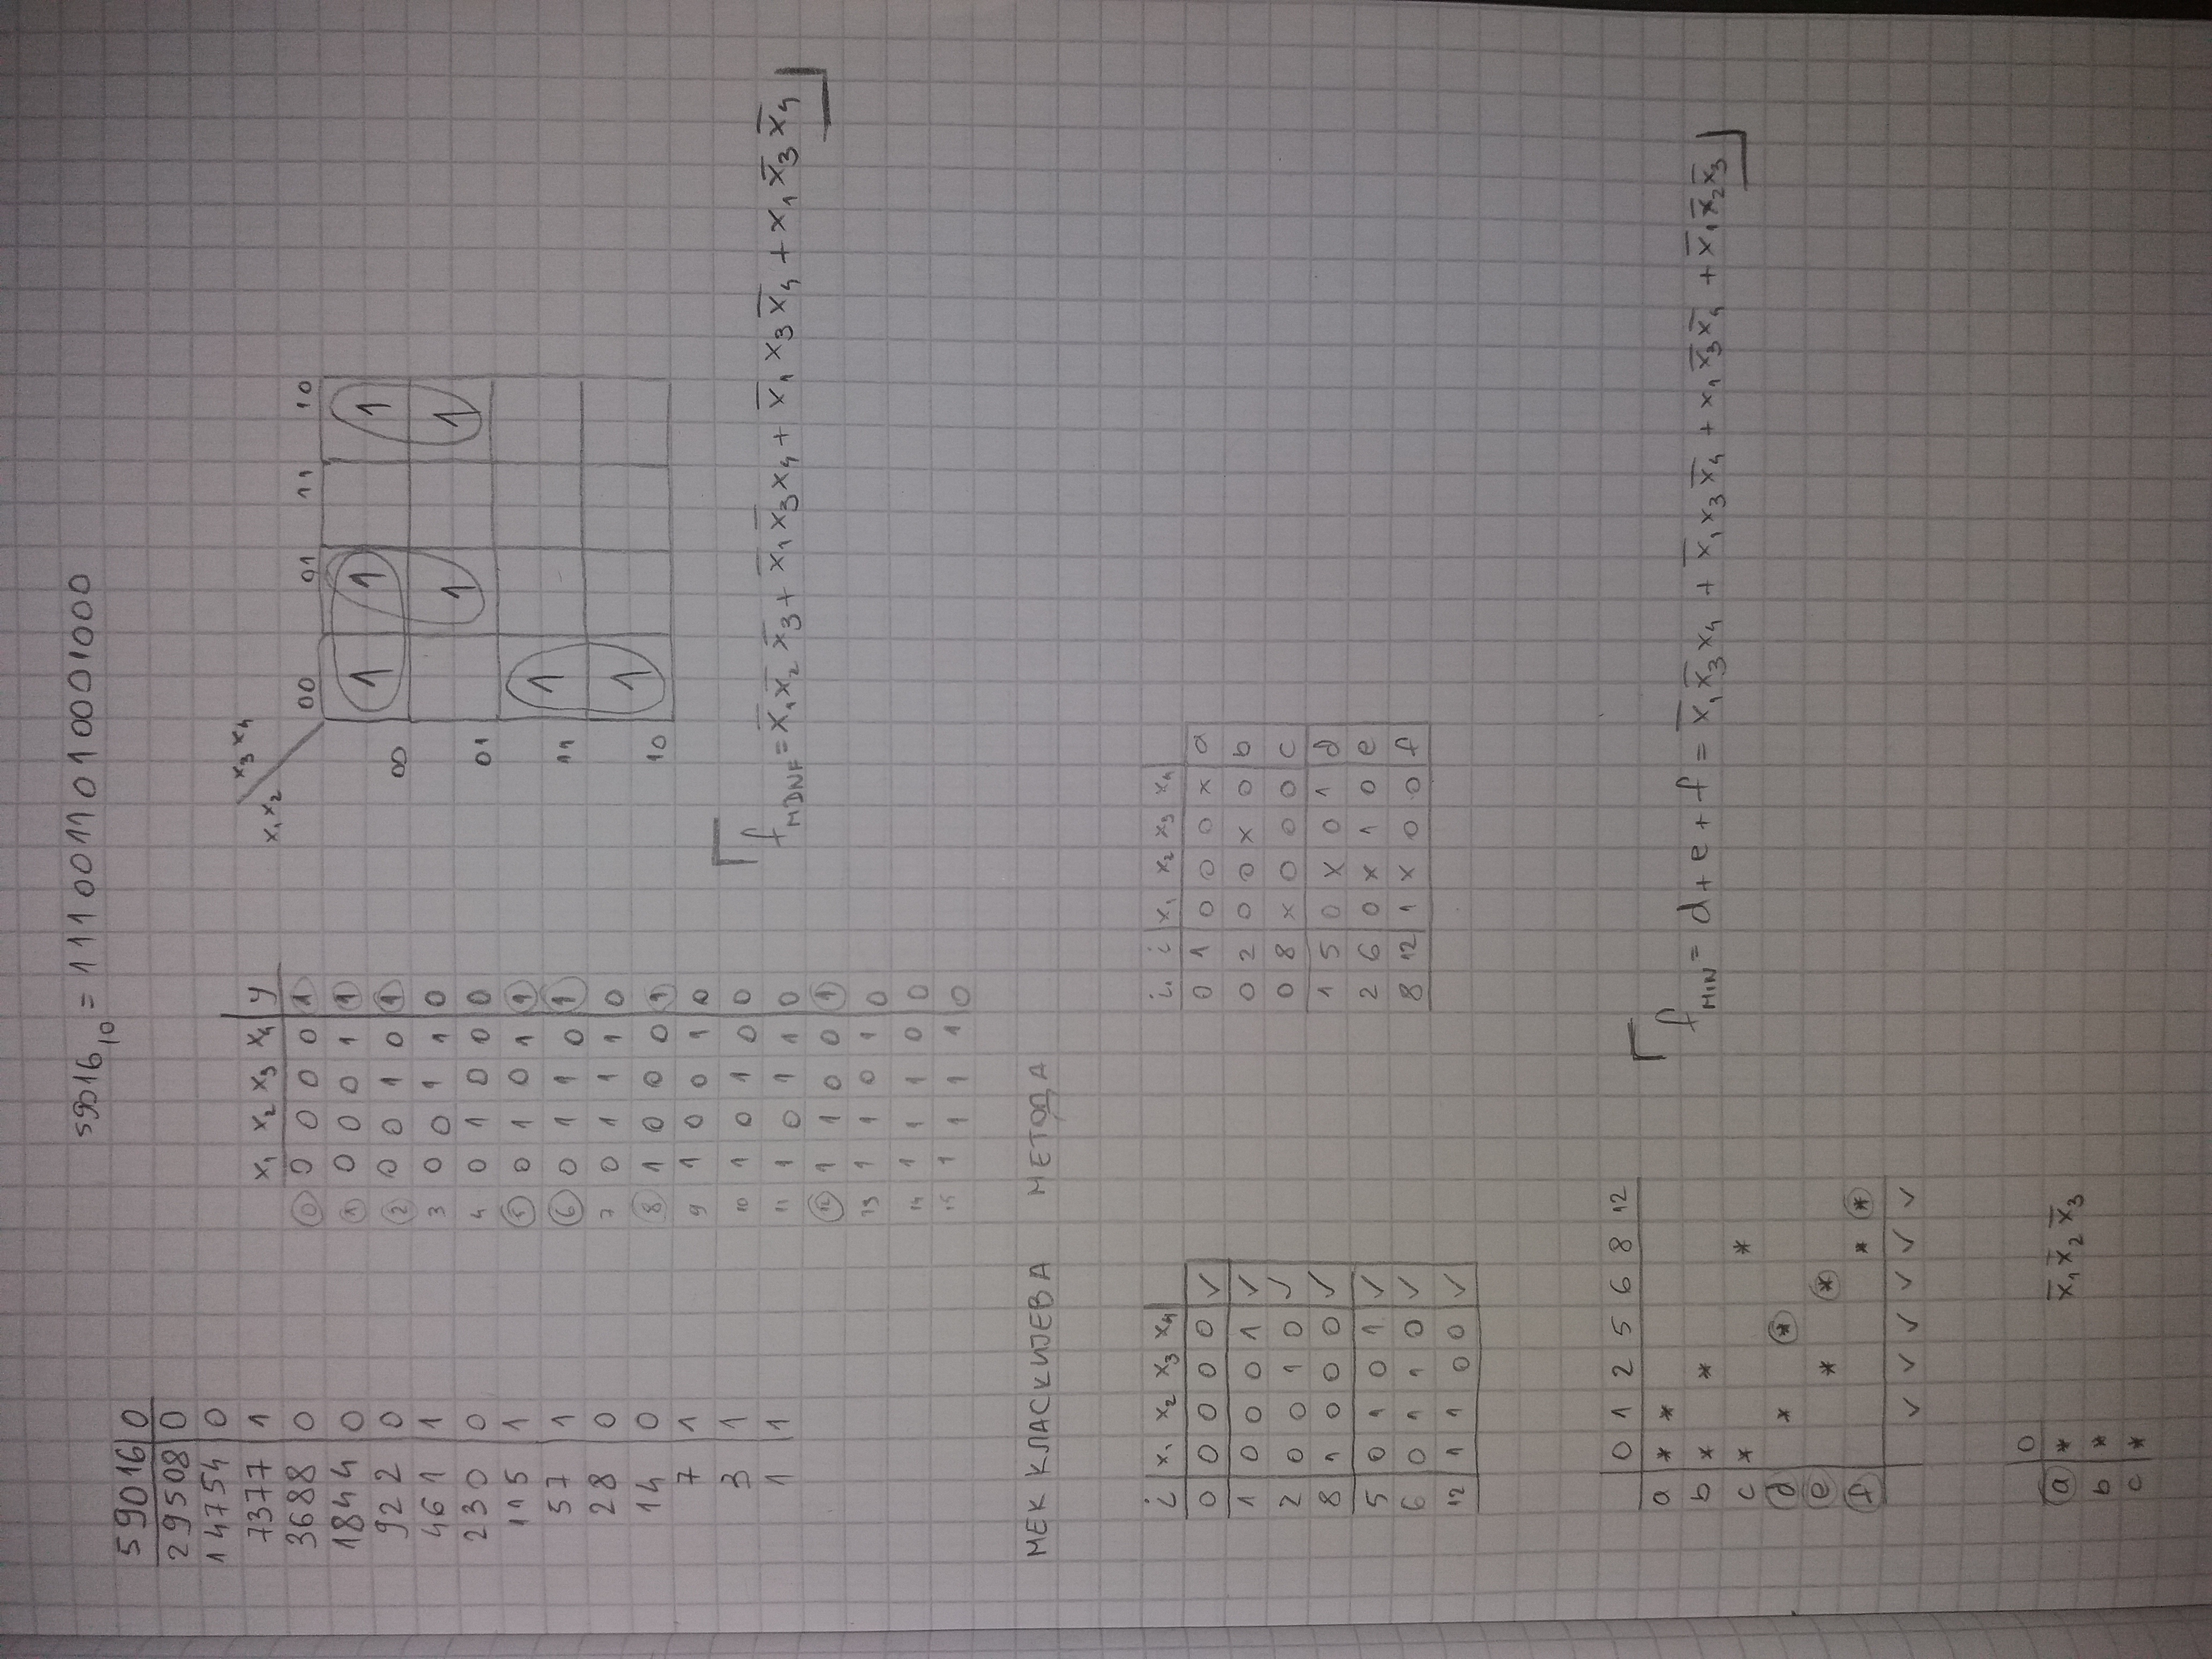 59016₁₀ = 1110011010001000
59016 | 0
29508 | 0
14754 | 0
7377 | 1
3688 | 0
1844 | 0
922 | 0
461 | 1
230 | 0
115 | 1
57 | 1
28 | 0
14 | 0
7 | 1
3 | 1
1 | 1
x₁ x₂ x₃ x₄ | y
0 0 0 0 0 | 1
1 0 0 0 1 | 1
2 0 0 1 0 | 1
3 0 0 1 1 | 0
4 0 1 0 0 | 0
5 0 1 0 1 | 1
6 0 1 1 0 | 1
7 0 1 1 1 | 0
8 1 0 0 0 | 1
9 1 0 0 1 | 0
10 1 0 1 0 | 0
11 1 0 1 1 | 0
12 1 1 0 0 | 1
13 1 1 0 1 | 0
14 1 1 1 0 | 0
15 1 1 1 1 | 0
x₃ x₄
x₁ x₂
00 01 11 10
00 1 1 1
01 1 1
11 1
10 1
f_MDNF = x̅₁ x̅₂ x̅₃ + x̅₁ x̅₃ x₄ + x̅₁ x₃ x̅₄ + x₁ x̅₃ x̅₄
МЕК КЛАСКИЈЕВА МЕТОДА
i | x₁ x₂ x₃ x₄
0 | 0 0 0 0 | ✓
1 | 0 0 0 1 | ✓
2 | 0 0 1 0 | ✓
8 | 1 0 0 0 | ✓
5 | 0 1 0 1 | ✓
6 | 0 1 1 0 | ✓
12 | 1 1 0 0 | ✓
i. i | x₁ x₂ x₃ x₄
0 1 | 0 0 0 x | a
0 2 | 0 0 x 0 | b
0 8 | x 0 0 0 | c
1 5 | 0 x 0 1 | d
2 6 | 0 x 1 0 | e
8 12 | 1 x 0 0 | f
0 1 2 5 6 8 12
a * *
b * *
c * *
d * *
e * *
f * *
✓ ✓ ✓ ✓ ✓ ✓
f_MIN = d + e + f = x̅₁ x̅₃ x₄ + x̅₁ x₃ x̅₄ + x₁ x̅₃ x̅₄ + x̅₁ x̅₂ x̅₃
0
a *
b *
c *
x̅₁ x̅₂ x̅₃